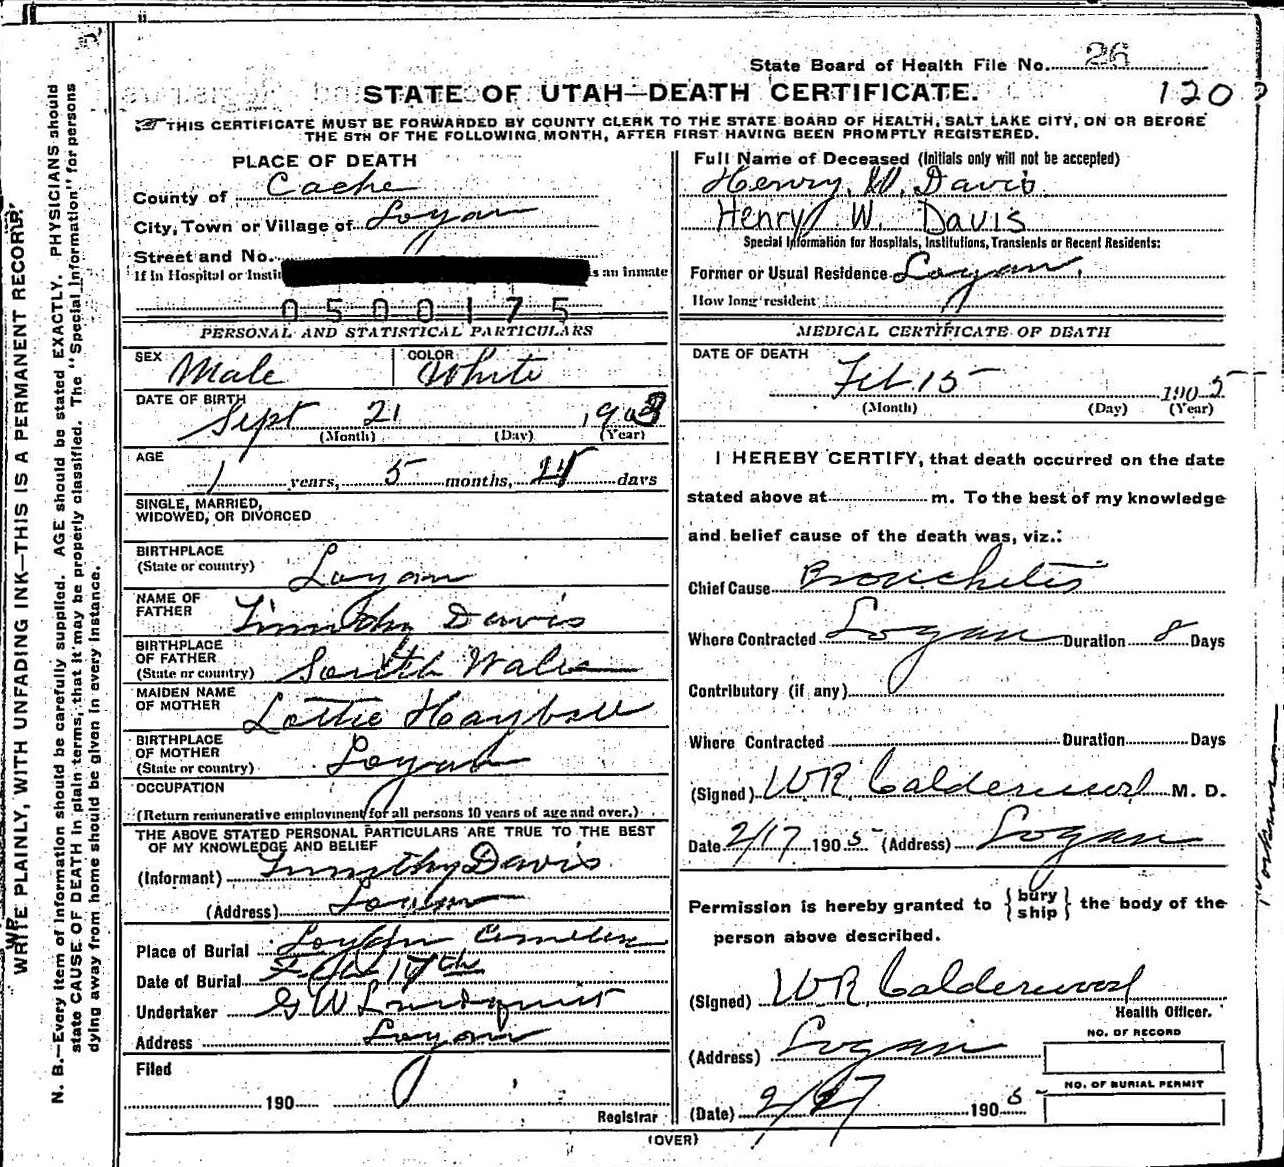 State Board of Health File No. 26
120
STATE OF UTAH—DEATH CERTIFICATE.
THIS CERTIFICATE MUST BE FORWARDED BY COUNTY CLERK TO THE STATE BOARD OF HEALTH, SALT LAKE CITY, ON OR BEFORE
THE 5TH OF THE FOLLOWING MONTH, AFTER FIRST HAVING BEEN PROMPTLY REGISTERED.
PLACE OF DEATH
County of Cache
City, Town or Village of Logan
Street and No.
If in Hospital or Instit is an inmate
0500175
Full Name of Deceased (Initials only will not be accepted)
Henry W. Davis
Henry W. Davis
Special Information for Hospitals, Institutions, Transients or Recent Residents:
Former or Usual Residence Logan.
How long resident
PERSONAL AND STATISTICAL PARTICULARS
SEX Male
COLOR White
DATE OF BIRTH
Sept 21 1903
(Month) (Day) (Year)
AGE
1 years, 5 months, days
SINGLE, MARRIED,
WIDOWED, OR DIVORCED
BIRTHPLACE
(State or country) Logan
NAME OF
FATHER Timothy Davis
BIRTHPLACE
OF FATHER
(State or country) South Wales
MAIDEN NAME
OF MOTHER Lottie Hayball
BIRTHPLACE
OF MOTHER
(State or country) Logan
OCCUPATION
(Return remunerative employment for all persons 10 years of age and over.)
THE ABOVE STATED PERSONAL PARTICULARS ARE TRUE TO THE BEST
OF MY KNOWLEDGE AND BELIEF
(Informant) Timothy Davis
(Address) Logan
Place of Burial Logan Cemetery
Date of Burial Feb 17th
Undertaker G W Lindquist
Address Logan
Filed
190
Registrar
MEDICAL CERTIFICATE OF DEATH
DATE OF DEATH
Feb. 15 1905
(Month) (Day) (Year)
I HEREBY CERTIFY, that death occurred on the date
stated above at m. To the best of my knowledge
and belief cause of the death was, viz.:
Chief Cause Bronchitis
Where Contracted Logan Duration 8 Days
Contributory (if any)
Where Contracted Duration Days
(Signed) WR Calderwood M. D.
Date 2/17 1905 (Address) Logan
Permission is hereby granted to { bury ship } the body of the
person above described.
(Signed) WR Calderwood
Health Officer.
(Address) Logan
NO. OF RECORD
NO. OF BURIAL PERMIT
(Date) 2/17 1905
(OVER)
WRITE PLAINLY, WITH UNFADING INK—THIS IS A PERMANENT RECORD.
N. B.—Every item of information should be carefully supplied. AGE should be stated EXACTLY. PHYSICIANS should
state CAUSE OF DEATH in plain terms, that it may be properly classified. The "Special Information" for persons
dying away from home should be given in every instance.